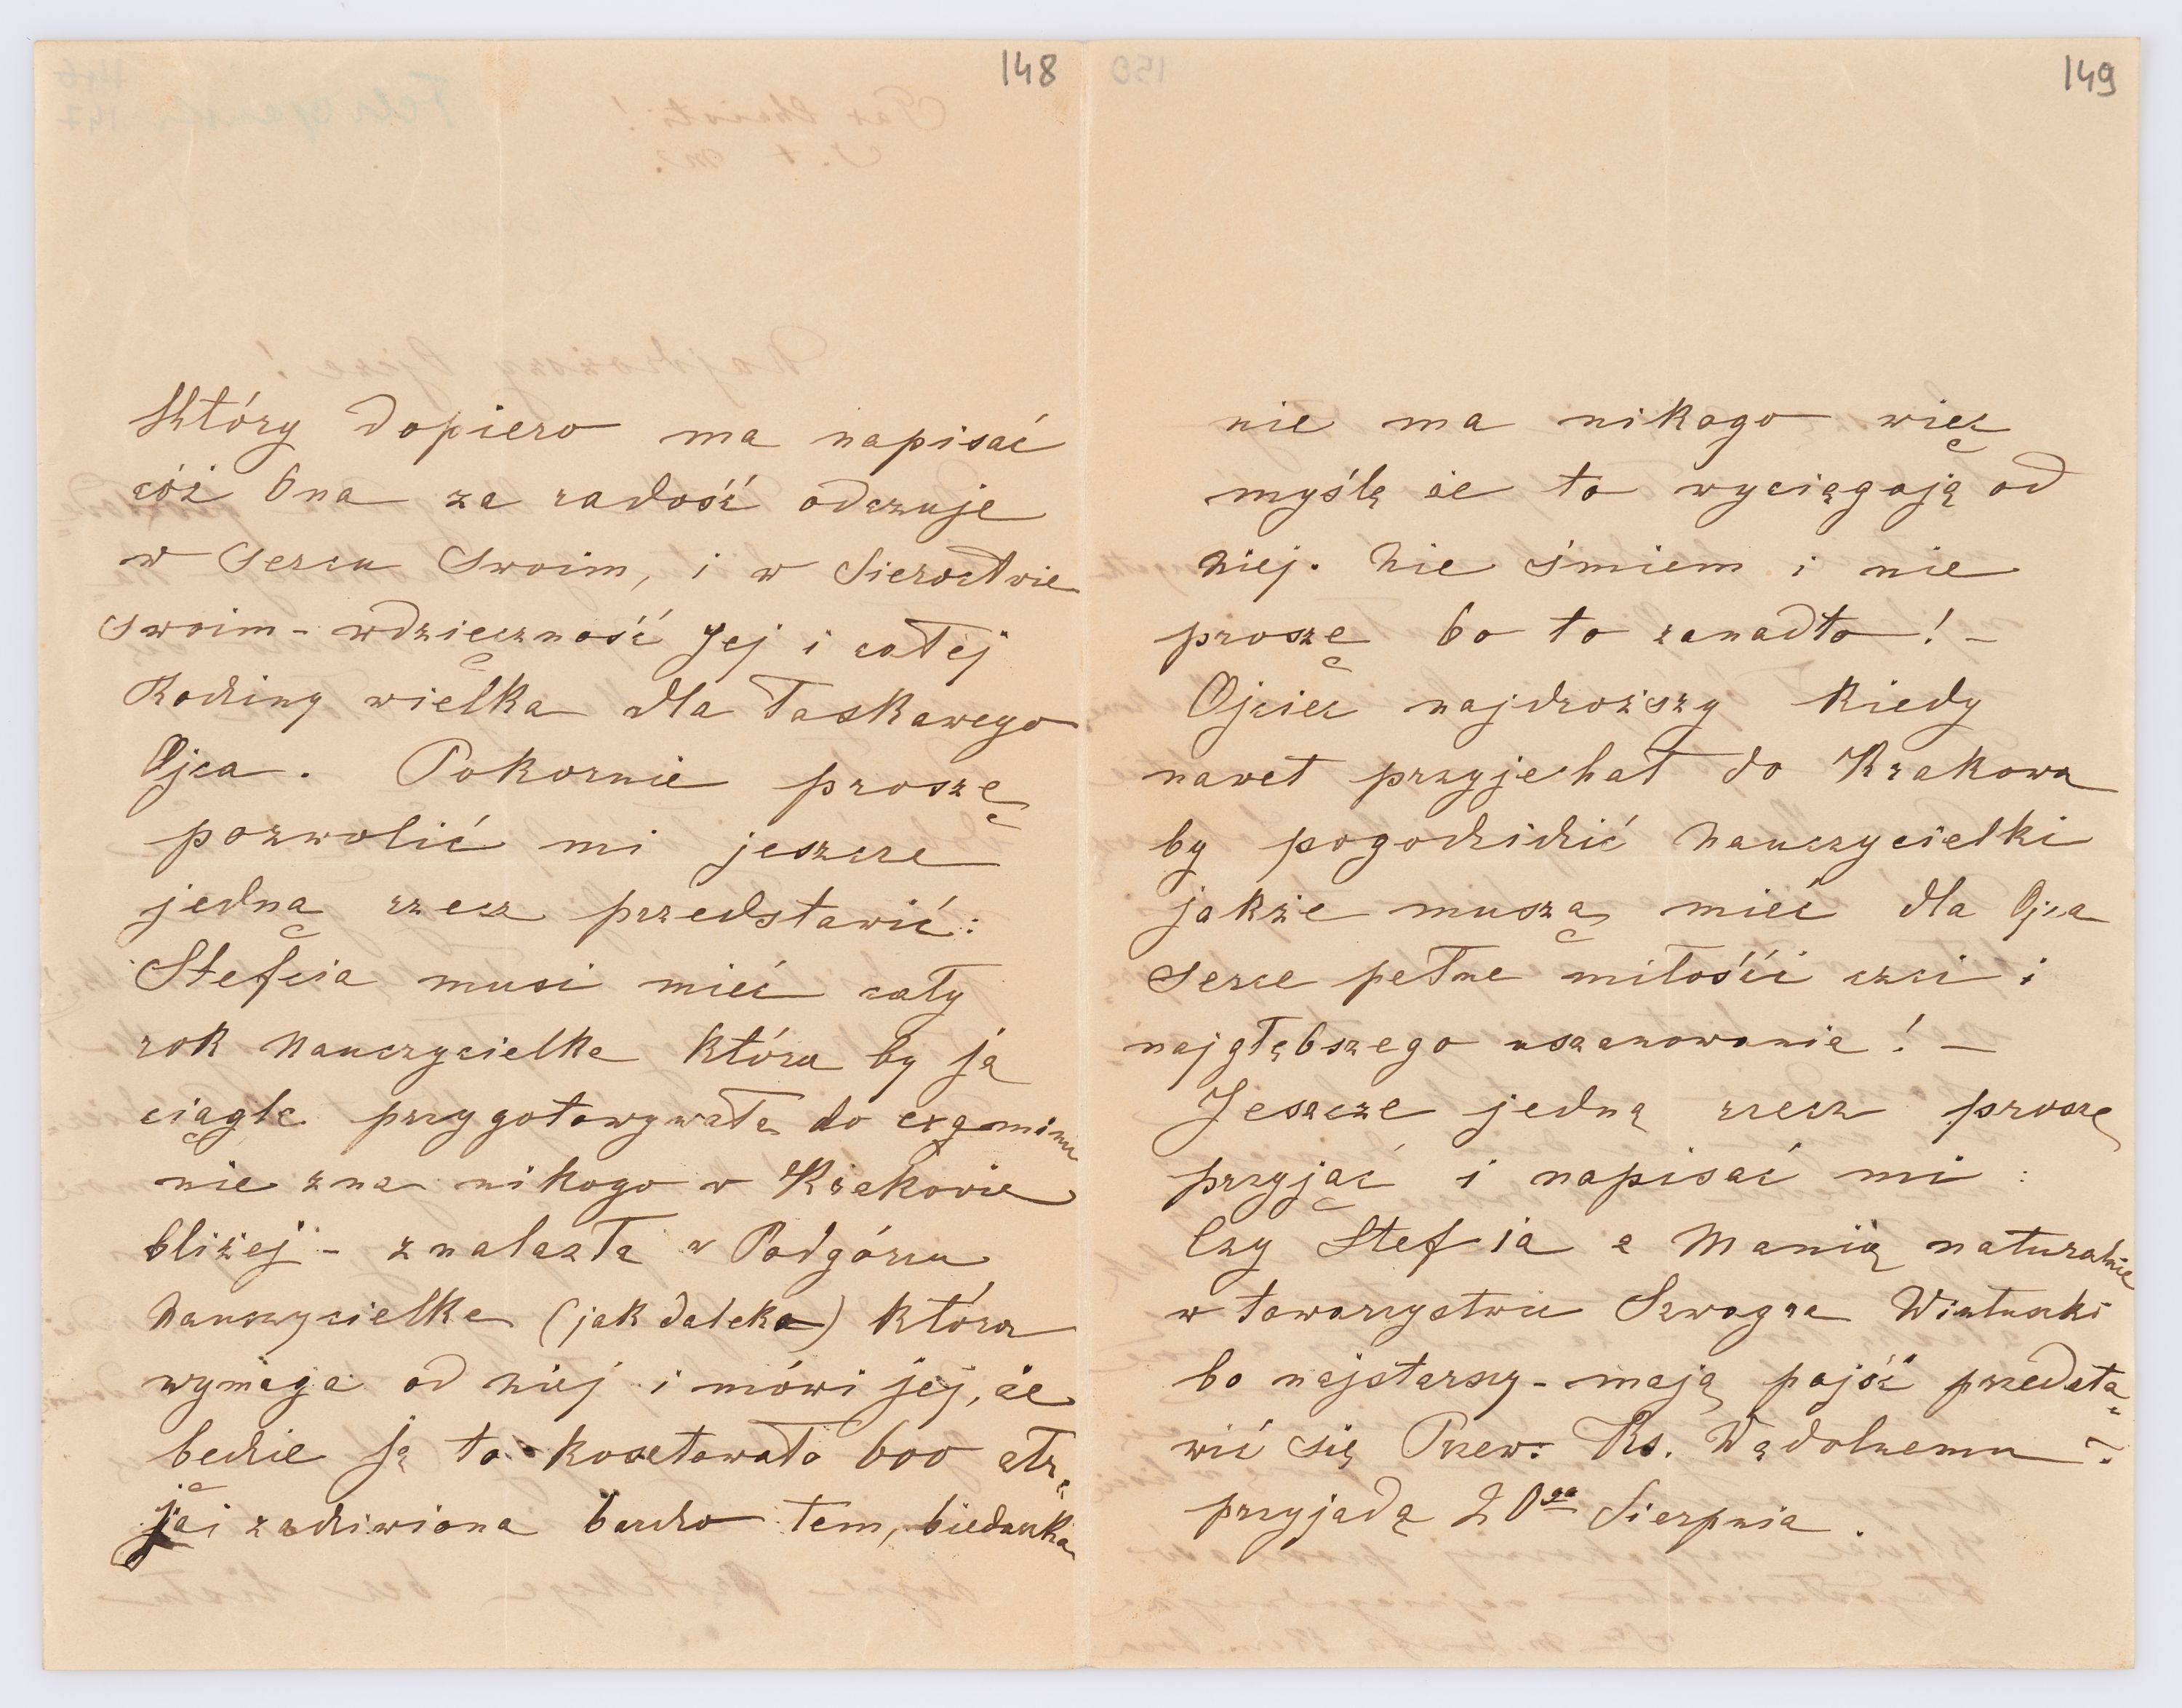 148
który dopiero ma napisać
cóż Ona za radość odczuje
w Sercu Swoim, i w Sieroctwie
swoim - wdzięczność Jej i całej
Rodziny wielka dla Łaskawego
Ojca. Pokornie proszę
pozwolić mi jeszcze
jedną rzecz przedstawić:
Stefcia musi mieć cały
rok Nauczycielkę która by ją
ciągle przygotowywała do examinu
nie zna nikogo w Krakowie
bliżej - znalazła w Podgórzu
Nauczycielkę (jak daleko) która
wymaga od niej i mówi jej, że
będzie ją to kosztowało 600 złr,
ja i zadziwiona bardzo tem, biedaczka
149
nie ma nikogo więc
myślę że to wyciągają od
niej. Nie śmiem i nie
proszę bo to zanadto! -
Ojciec najdroższy kiedy
nawet przyjechał do Krakowa
by pogodzidić Nauczycielki
jakże muszą mieć dla Ojca
serce pełne miłości czci i
najgłębszego uszanowania! -
Jeszcze jedną rzecz proszę
przyjąć i napisać mi :
Czy Stefcia z Manią naturalnie
w towarzystwie Szwagra
bo najstarszy - mają pójść przedsta-
wić się Przew: Ks. Wądolnemu ?
przyjadą 20go Sierpnia.